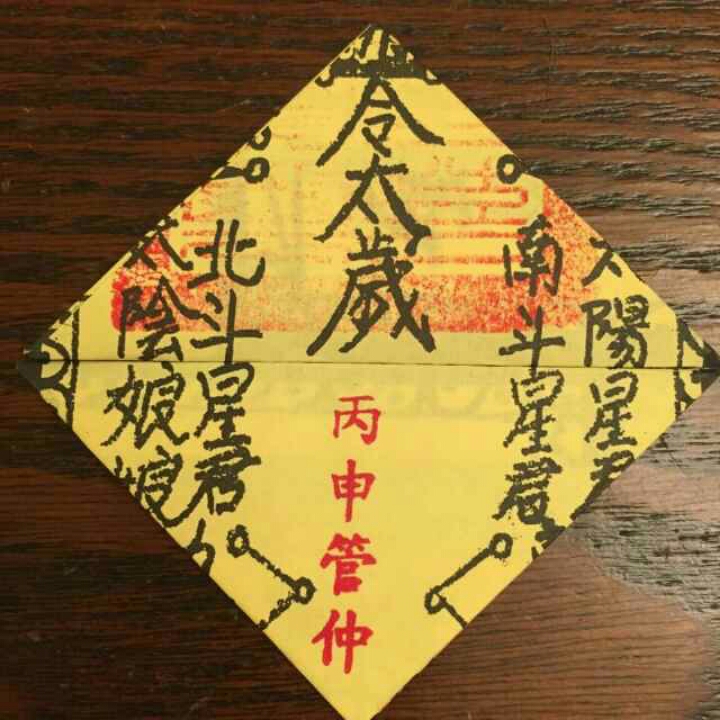 令太歲
丙申管仲
南斗星君
太陽星君
北斗星君
太陰娘娘